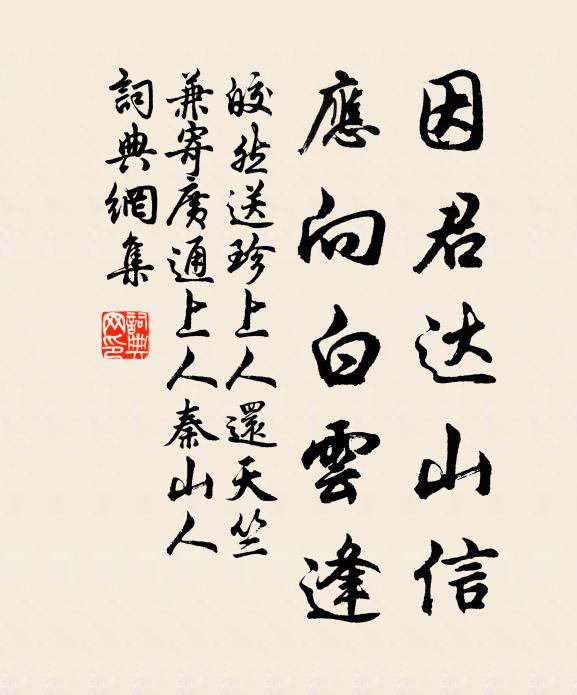 因君达山信
應向白雲逢
皎然送珍上人還天竺
兼寄廣通上人秦山人
詞典網集
詞典
网印